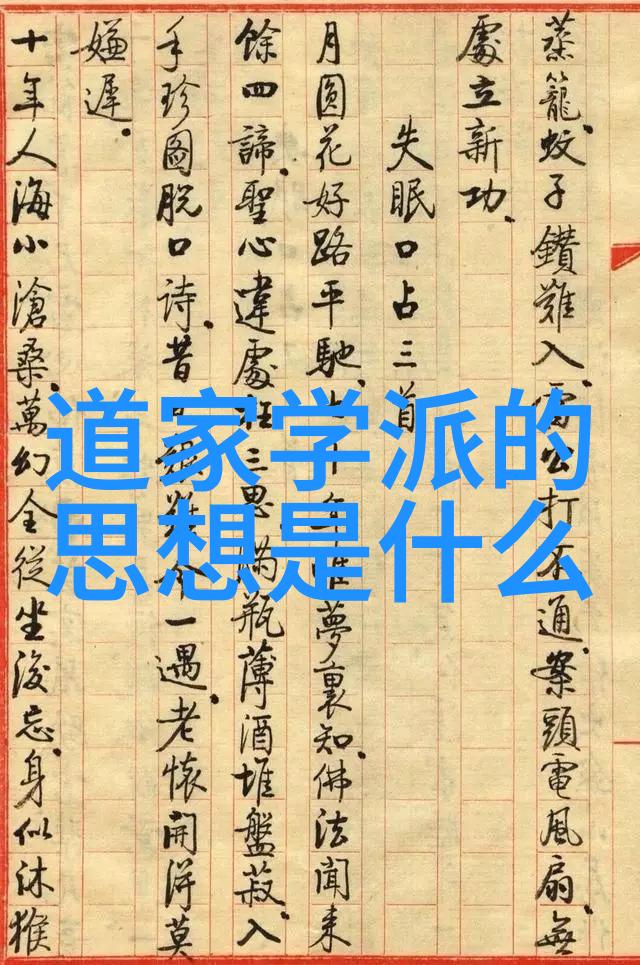 蒸籠蚊子鑽難入、雷公打不通、案頭電風扇、無
處立新功、
失眠口占三首
月圓花好路平馳、七十年唯夢裏知、佛法聞來
餘四諦、聖心違處枉三思、滿瓶薄酒堆盤菽、入
手珍圖脫口詩、昔日難今一遇、老懷開得莫
嫌遲、
十年人海小滄桑、萬幻全從坐後忘、身似沐猴
道家学派的
思想是什么